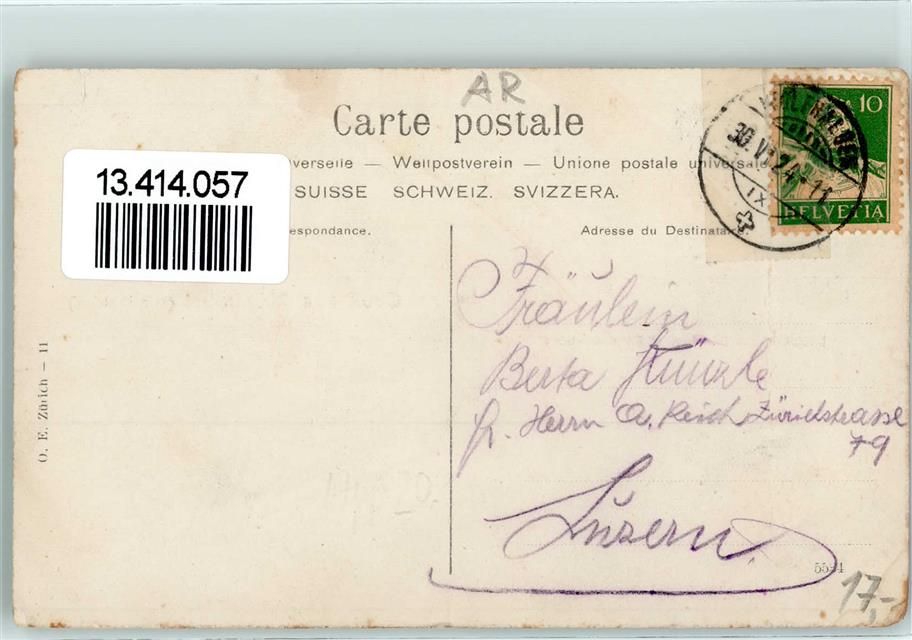 AR
Carte postale
verselle — Weltpostverein — Unione postale universale
SUISSE SCHWEIZ. SVIZZERA.
13.414.057
respondance.
Adresse du Destinataire
10
HELVETIA
30.VI.24 11
IX
Fräulein
Berta Künzle
p. Herrn A. Reich Zürichstrasse
79
Luzern.
O. E. Zürich — 11
17,-